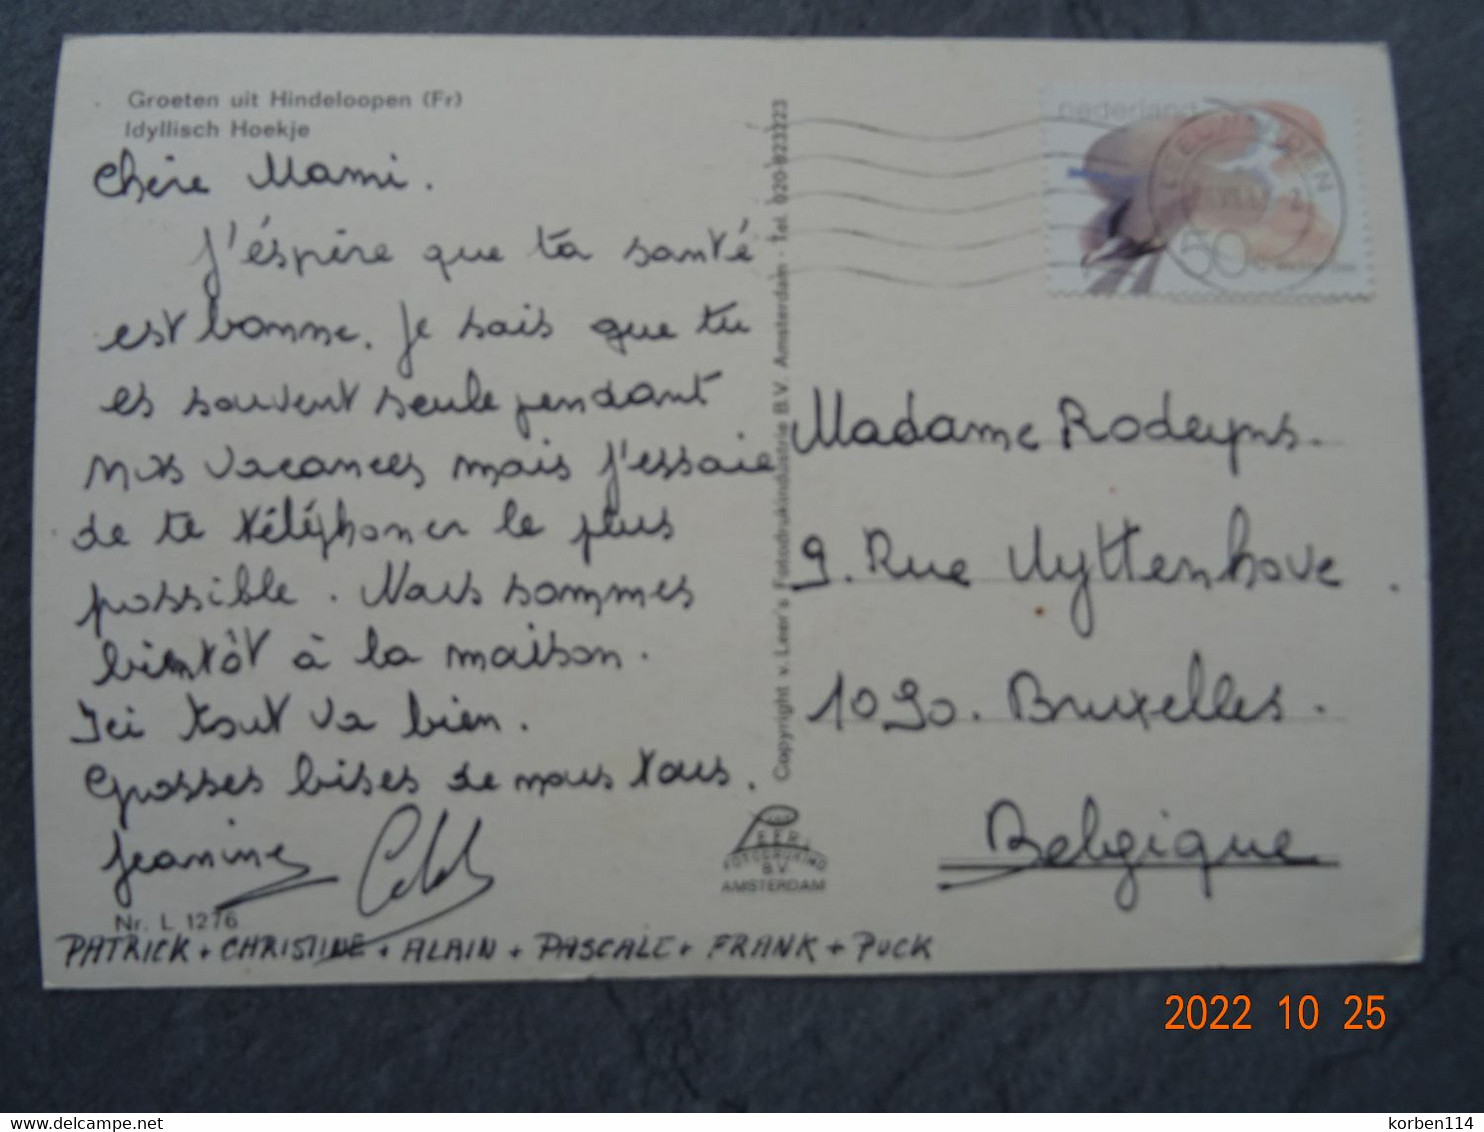 Groeten uit Hindeloopen (Fr)
Idyllisch Hoekje
Chère Mami.
J'éspère que ta santé
est bonne. Je sais que tu
es souvent seule pendant
nos vacances mais j'essaie
de te téléphoner le plus
possible. Nous sommes
bientôt à la maison.
Ici tout va bien.
Grosses bises de nous tous.
Jeanine
Nr. L 1276
PATRICK + CHRISTINE + ALAIN + PASCALE + FRANK + PUCK
Copyright v. Leer's Fotodrukindustrie B.V. Amsterdam - Tel. 020-823223
LEER'S
FOTODRUKIND
B.V.
AMSTERDAM
nederland
50
LEEUWARDEN
Madame Rodeyns.
9. Rue Uyttenhove
1090. Bruxelles.
Belgique
2022 10 25
www.delcampe.net
korben114